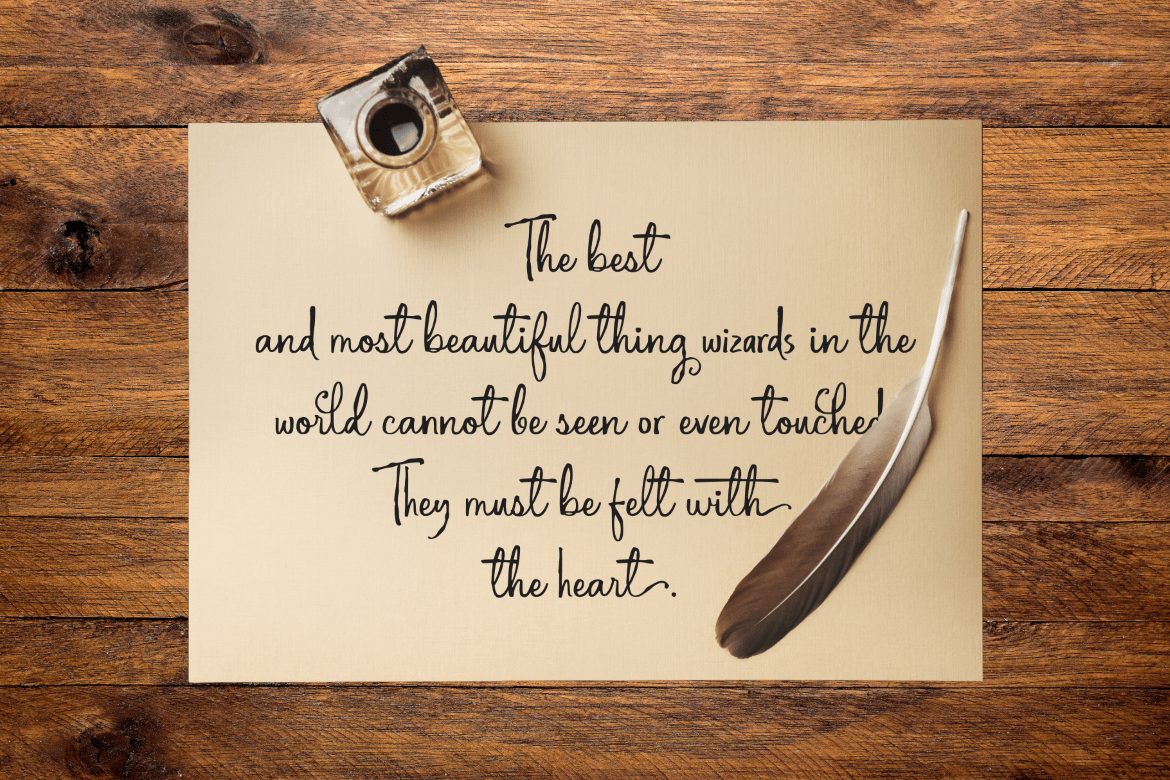 The best
and most beautiful thing wizards in the
world cannot be seen or even touched
They must be felt with
the heart.